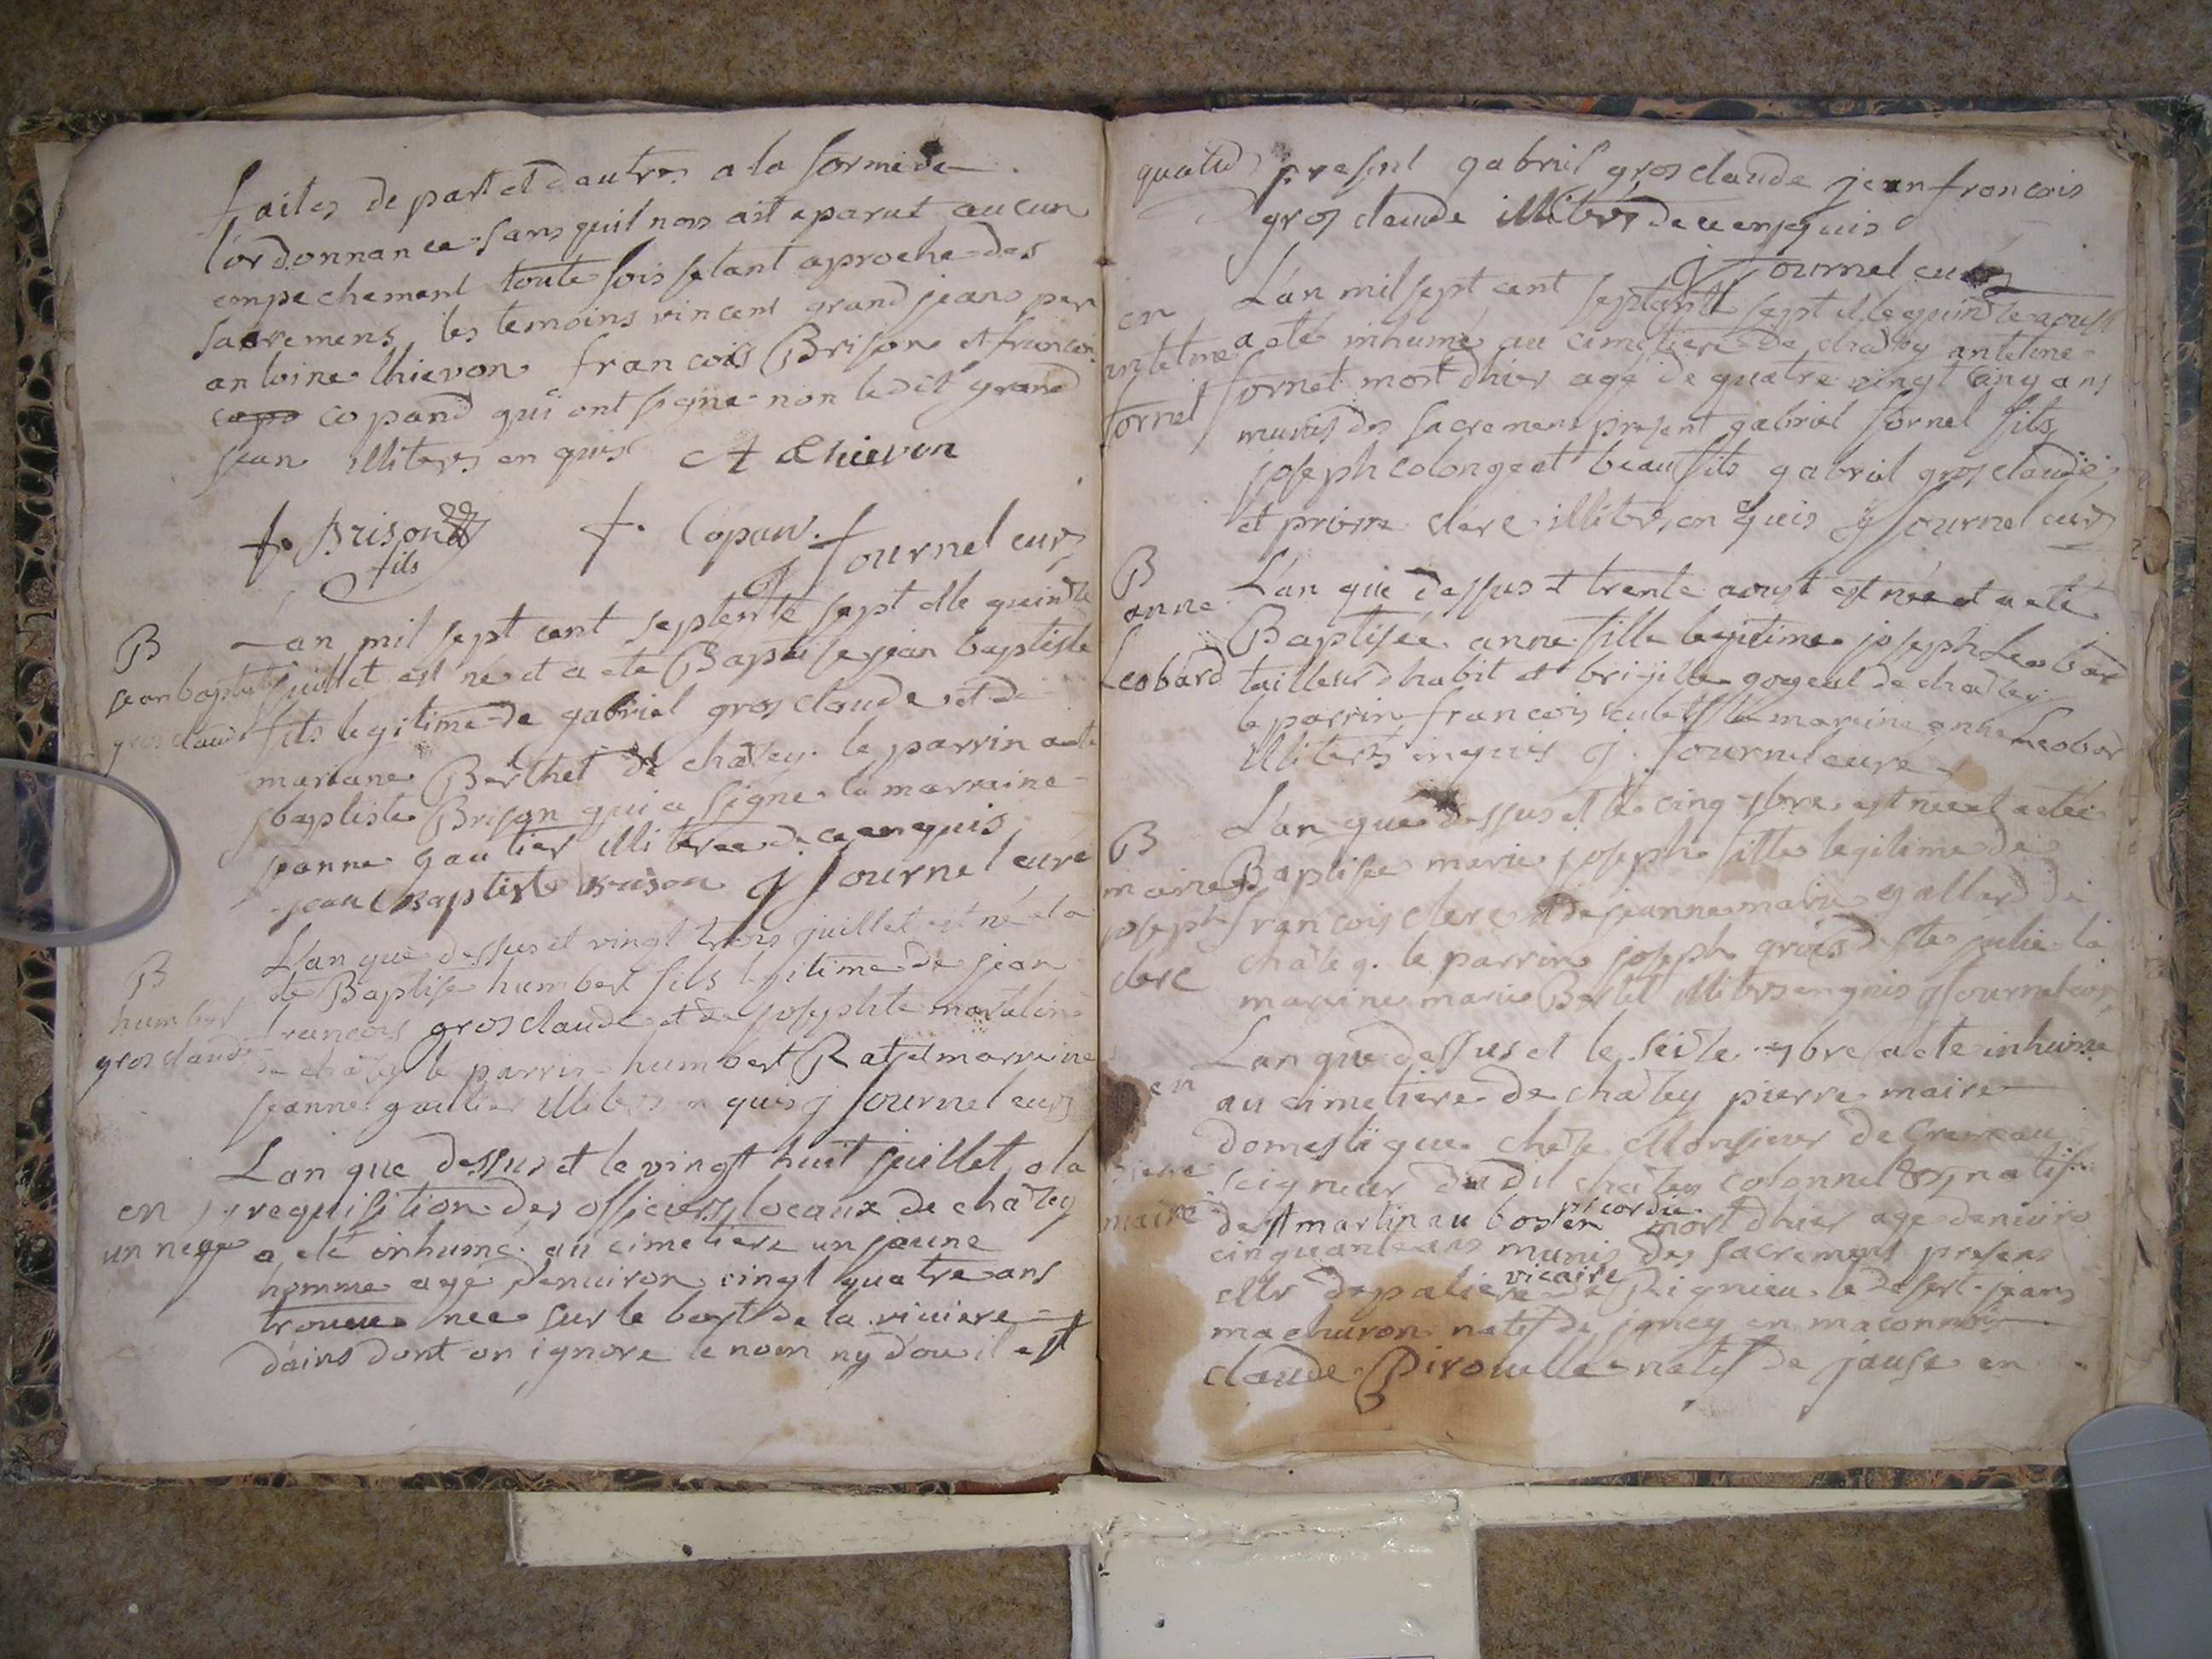 faites de part et d'autres a la forme de
l'ordonnance sans quil nous ait aparut aucun
empechement toute fois setant aproche des
sacremens les temoins vincent grand jean pere
antoine thievon francois Brison et francois
copand qui ont signe non ledit grand
jean illiters enquis A thievon
f. Brison fils f. Copan. J fournel cure
B
jean baptiste
gros claude
Lan mil sept cent septente sept et le quinze
juillet est né et a ete Baptise jean baptiste
fils legitime de gabriel gros claude et de
mariane Berthet de chaley. le parrin a ete
baptiste Brison qui a signe la marraine
jeanne gautier illiteree de ce enquis
jean Baptiste brison J fournel cure
B
humbert
gros claude
L'an que dessus et vingt trois juillet est né et a
ete Baptise humbert fils legitime de jean
francois gros claude et de josephte
de chaley le parrin humbert Rat et marreine
jeanne gautier illiters enquis J fournel cure
en
un nege
L'an que dessus et le vingt huit juillet a la
requisition des officiers locaux de chaley
a eté inhumé au cimetiere un jeune
homme age denviron vingt quatre ans
trouve nee sur le bort de la riviere
d'ains dont on ignore le nom ny d'ou il est
present gabriel gros claude jean francois
gros claude illiters de ce enquis
J fournel cure
en
antelme
fornet
L'an mil sept cent septante sept et le quinze aoust
a eté inhumé au cimetiere de chaley antelme
fornet mort dhier agé de quatre vingt cinq ans
munis des sacremens present gabriel fornel fils
joseph colongeat beau fils gabriel gros claude
et prisme clerc illiters enquis J fournel cure
B
anne
Leobard
L'an que dessus et trente aoust est née et a eté
Baptisée anne fille legitime joseph Leobard
tailleur dhabit et brigille gogeat de chaley
le parrin francois la mareine anne Leobard
illiters inquis J. fournel cure
B
marie
joseph
clerc
L'an que dessus et le cinq 7bre est nee et a etée
Baptisee marie joseph fille legitime de
francois clerc et de jeanne marie gallard de
chaley. le parrin joseph gros de ste julie la
mareine marie Bertet illiters enquis J fournel cure
en
pierre
maire
Lan que dessus et le seize 7bre a ete inhumé
au cimetiere de chaley pierre maire
domestique cheze Monsieur de Cremeau
seigneur du dit chaley colonnel &, natif
de st martin au bost en picordie mort dhier age denviro
cinquante ans munis des sacremens presens
Mr depaliere vicaire de Rignieu le desert jean
machuron natif de joncy en maconnois
claude Pirouelle natif de jause en